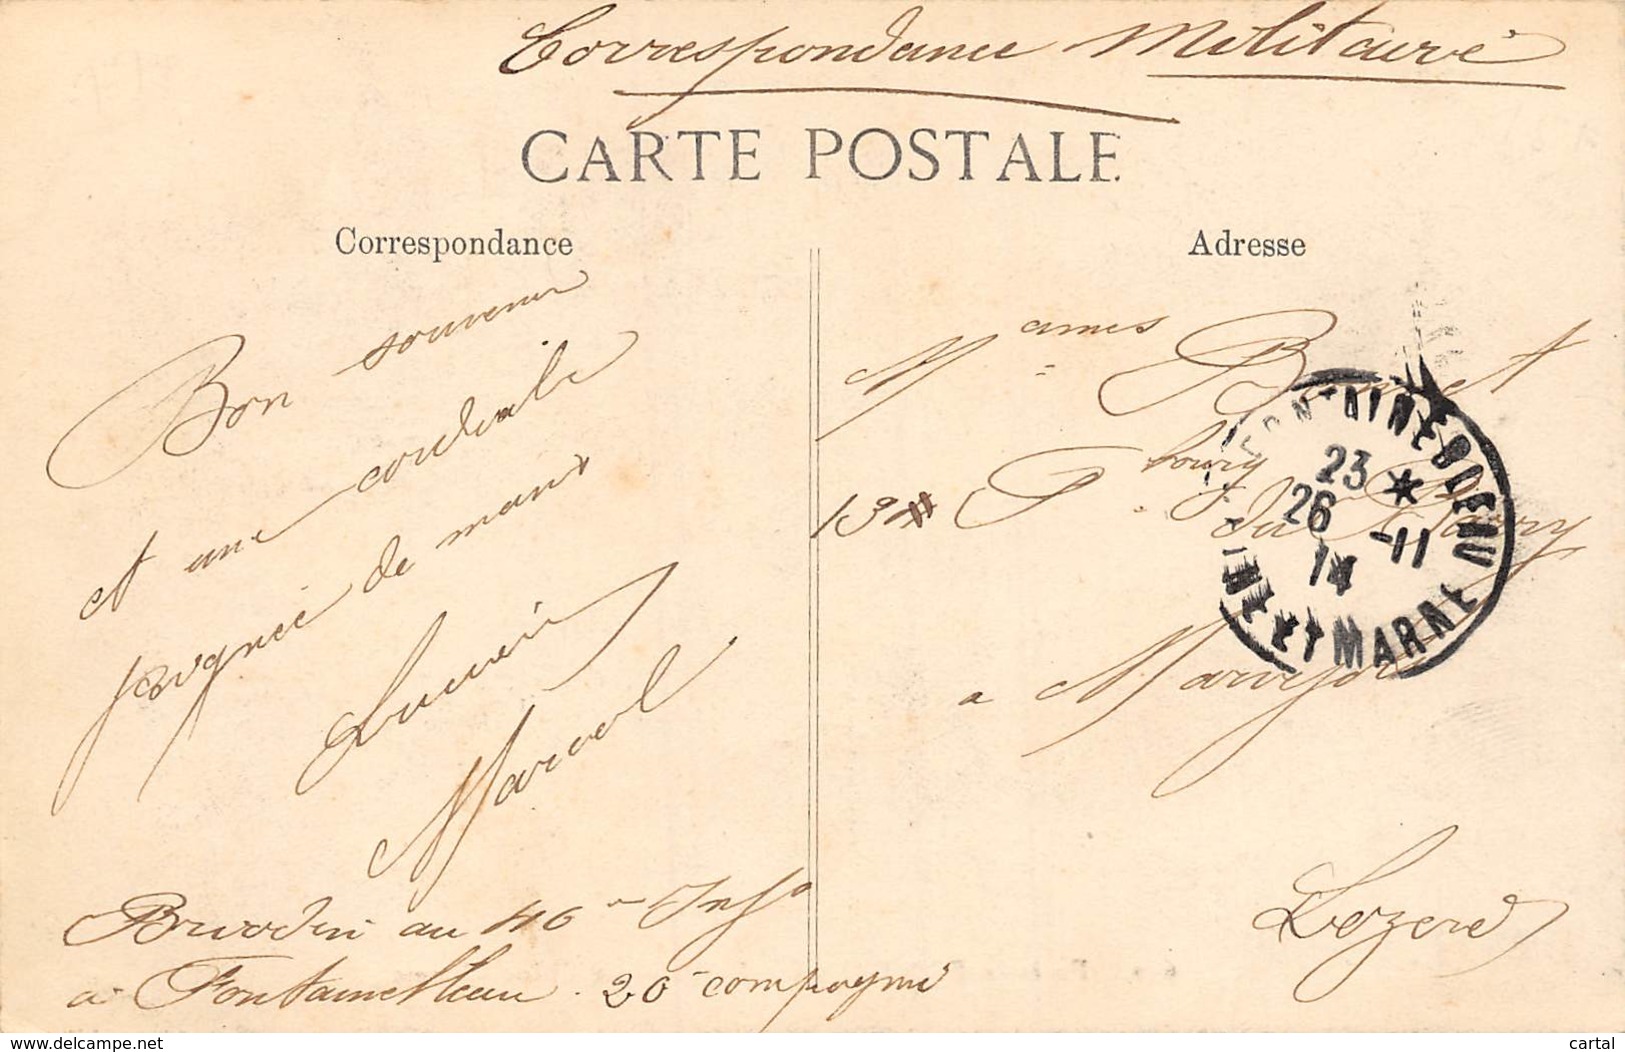 Correspondance Militaire
CARTE POSTALE
Correspondance
Adresse
Bon souvenir
et une cordiale
poignée de mains
Lucien
Marcel
au 46 Inf
a Fontainebleau. 20 compagnie
Mames
13 Fbourg du
a Marvejols
Lozere
FONTAINEBLEAU
23 *
26 -11
14
SEINE ET MARNE
delcampe.net
cartal